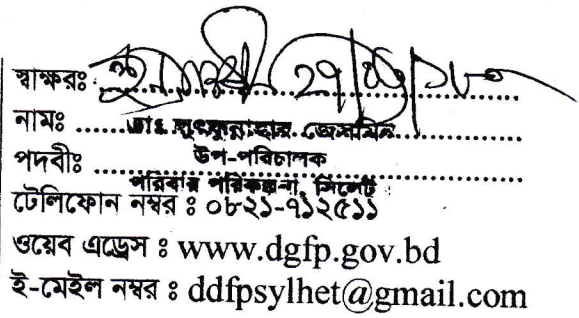 স্বাক্ষরঃ
নামঃ ডাঃ লুৎফুন্নাহার জেসমিন
পদবীঃ উপ-পরিচালক
পরিবার পরিকল্পনা, সিলেট
টেলিফোন নম্বর ঃ ০৮২১-৭১২৫১১
ওয়েব এড্রেস ঃ www.dgfp.gov.bd
ই-মেইল নম্বর ঃ ddfpsylhet@gmail.com